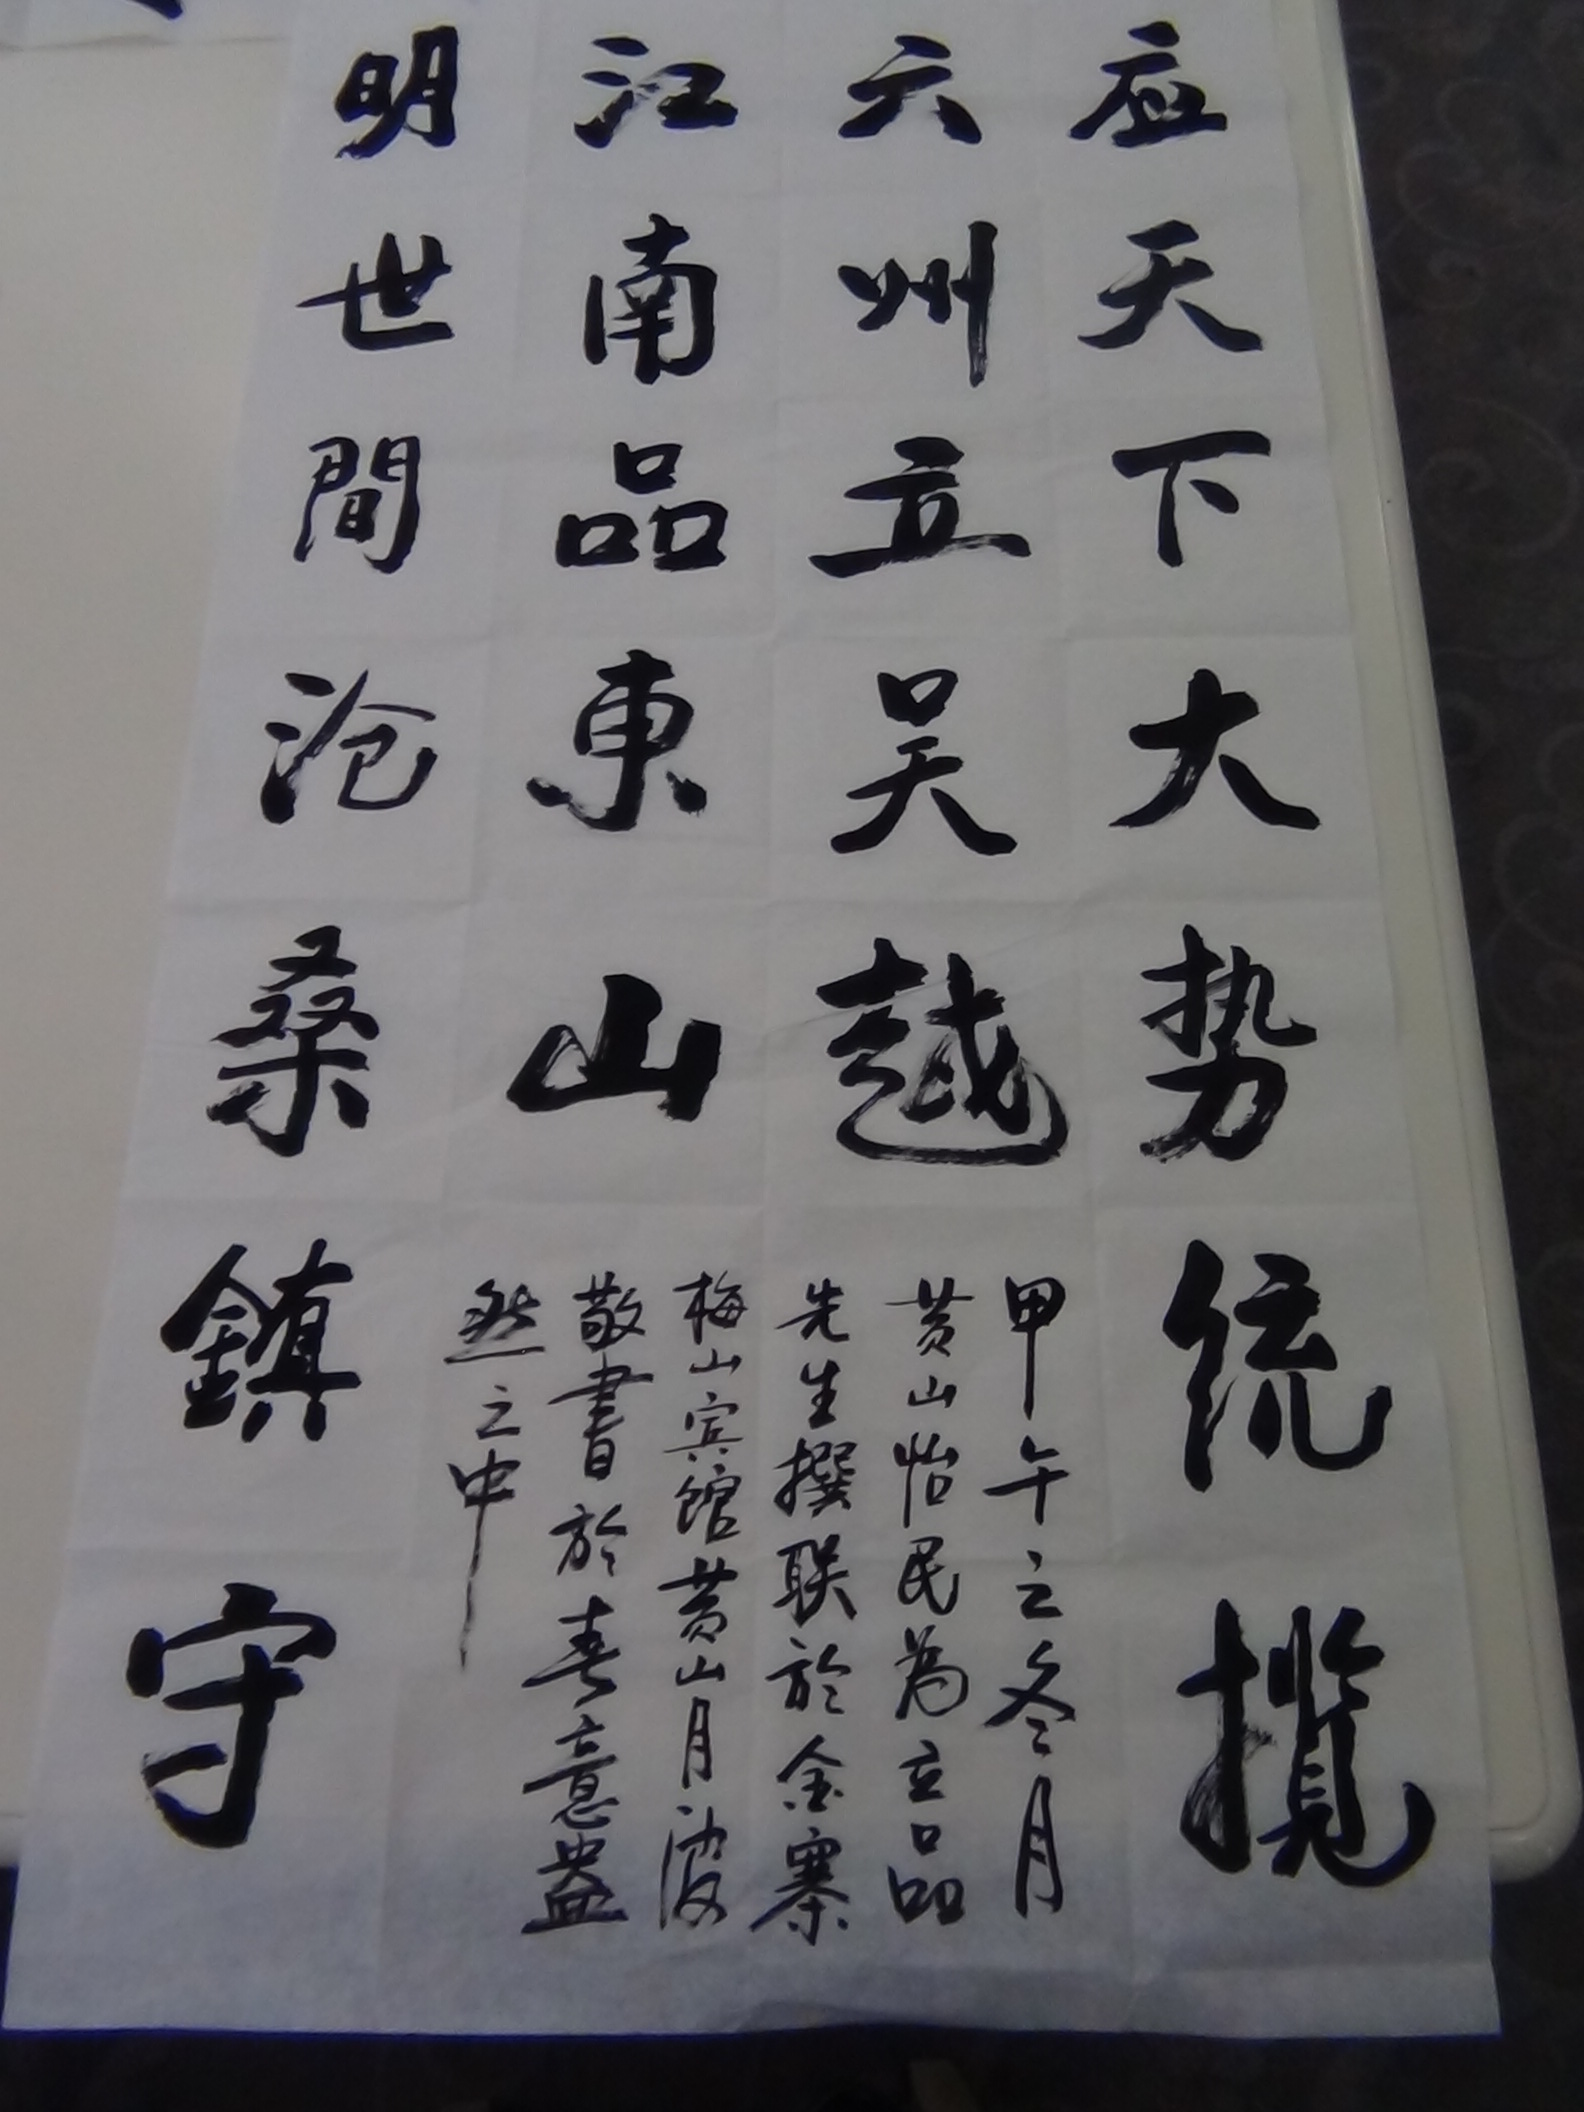 应天下大势统揽
六州立吴越
明世間沧桑鎮守
江南品東山
甲午之冬月
黄山怡民為立品
先生撰联於金寨
梅山宾館黄山月波
敬書於春意盎
然之中